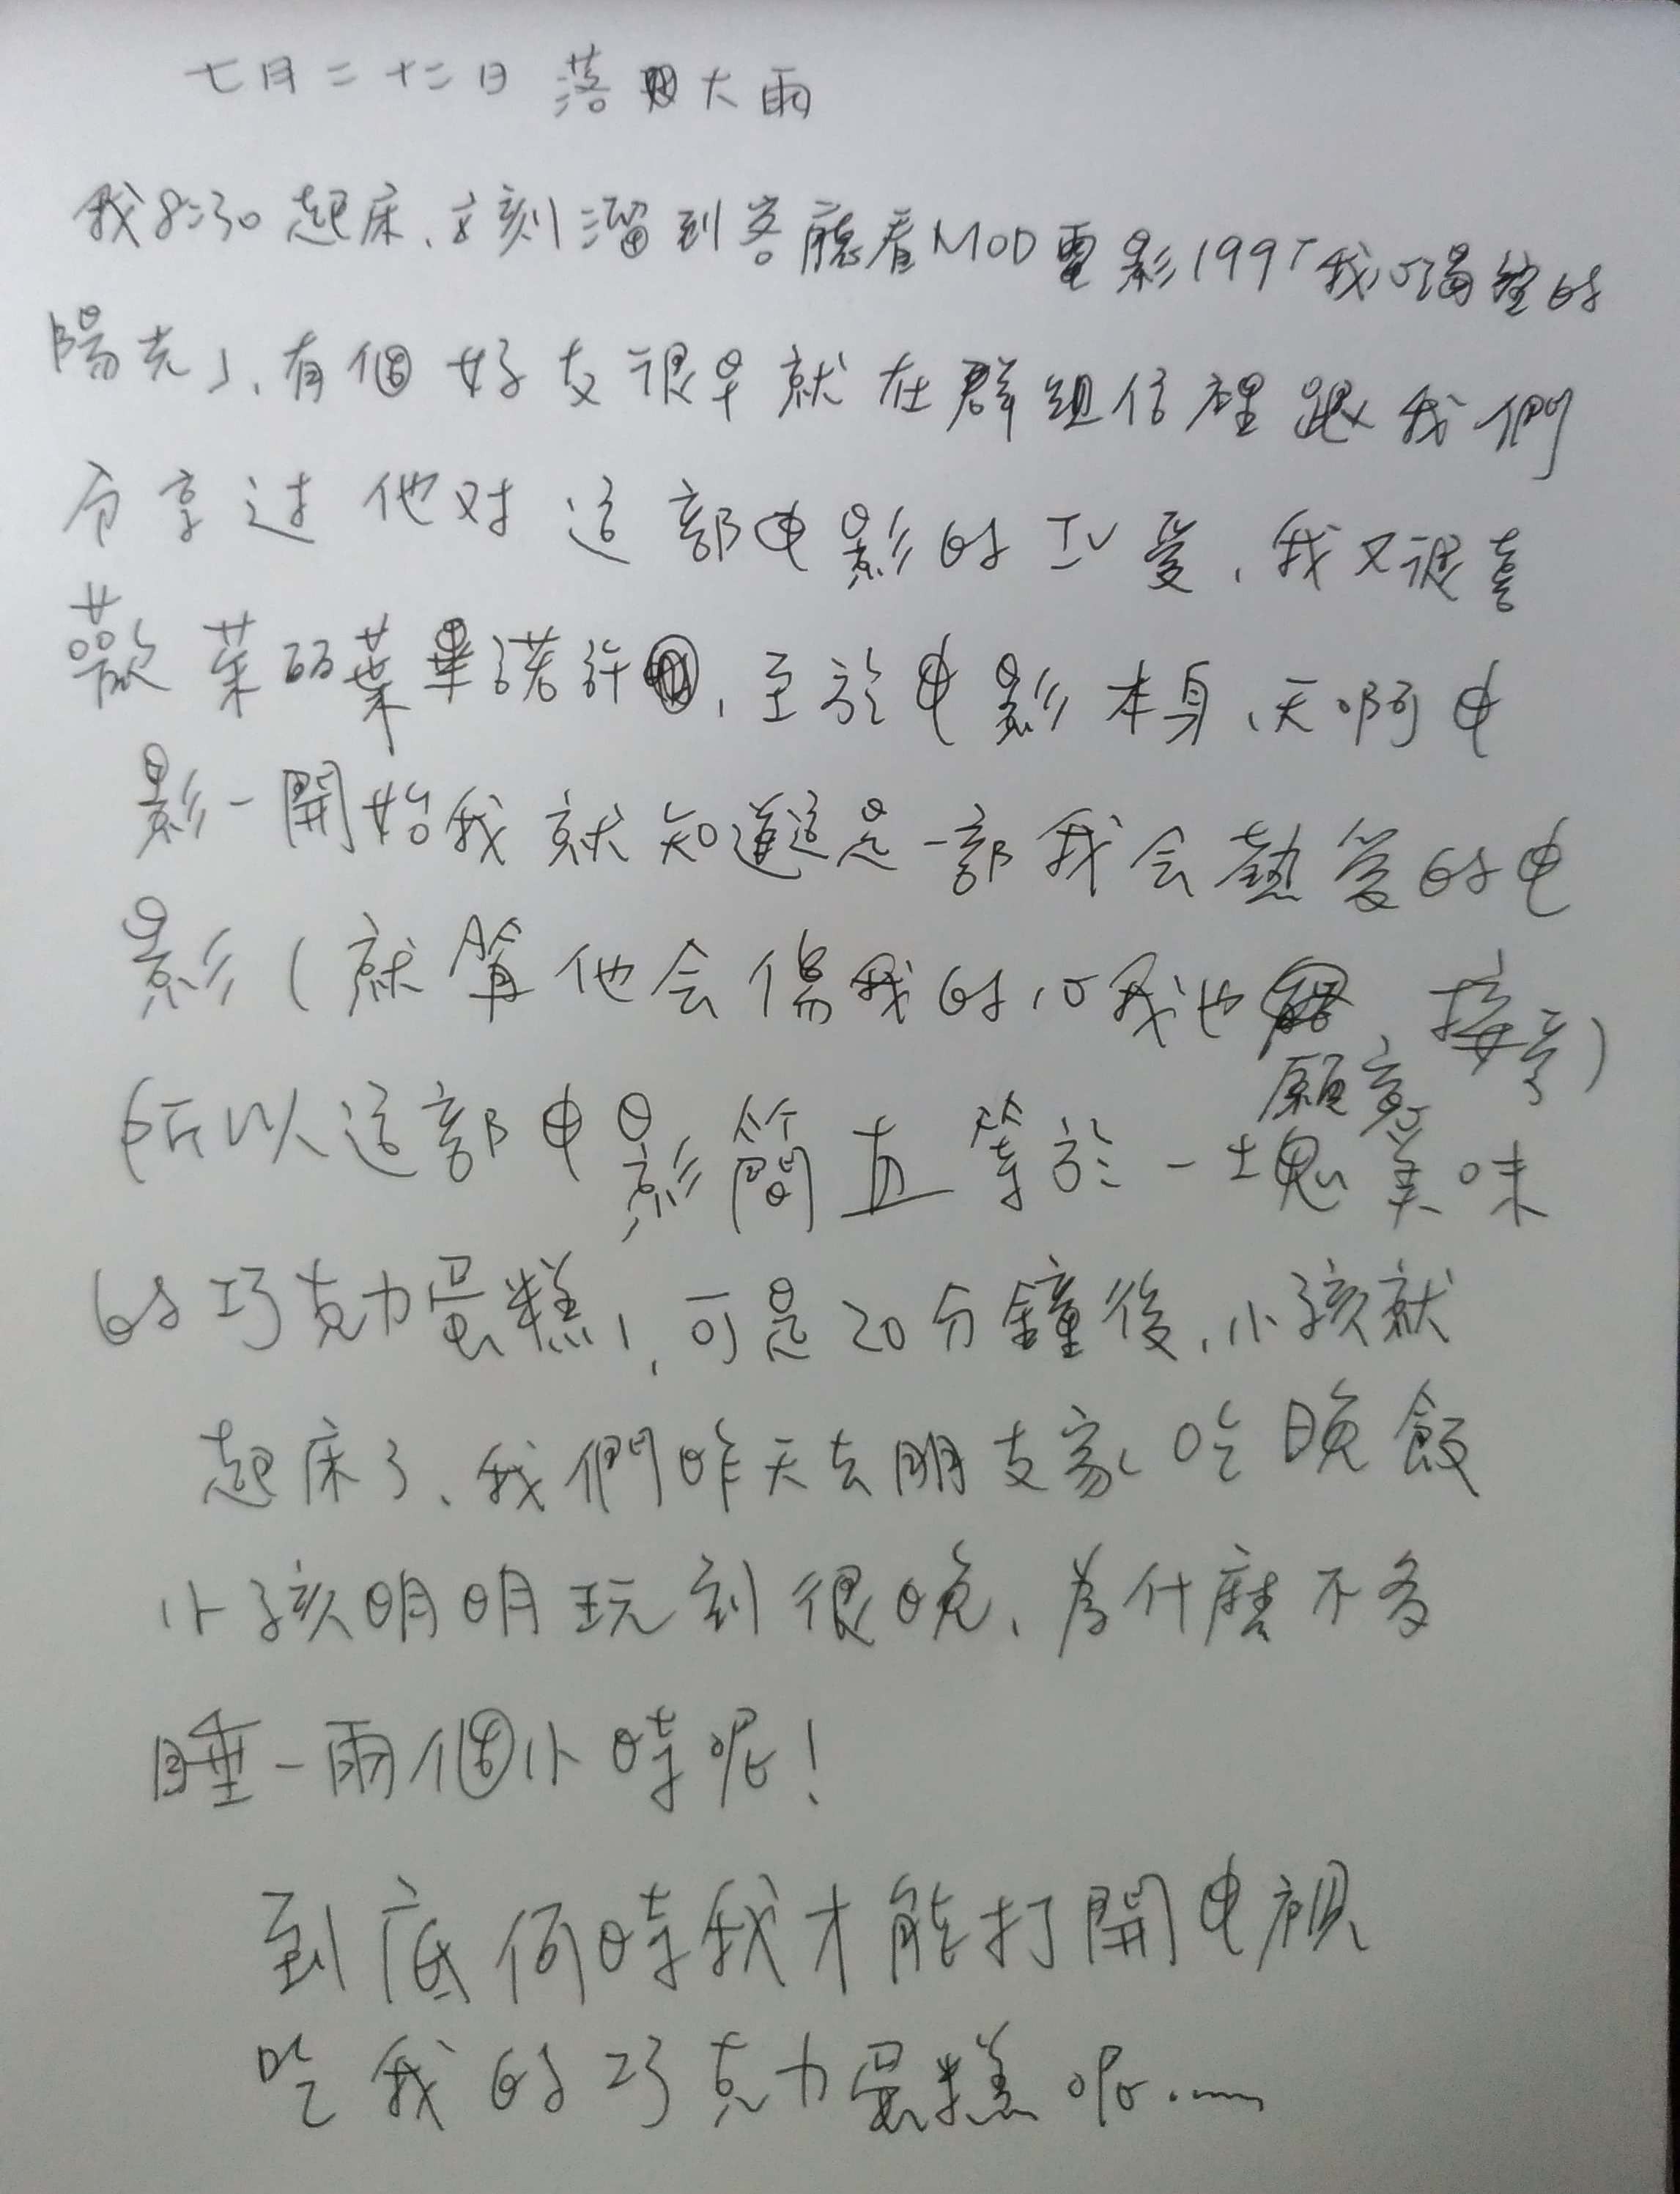 七月二十二日 落大雨
我8:30起床、立刻溜到客廳看MOD電影199「我心渴望的
陽光」、有個好友很早就在群組信裡跟我們
分享过他对這部电影的工心愛、我又很喜
歡茱丽葉畢諾許,至於电影本身、天啊电
影一開始我就知道這是一部我会熱愛的电
影(就算他会傷我的心我也願意接受)
所以這部电影簡直等於一塊美味
的巧克力蛋糕!,可是20分鐘後,小孩就
起床了、我們昨天去朋友家吃晚飯
小孩明明玩到很晚、為什麼不多
睡一兩個小時呢!
到底何時我才能打開电視
吃我的巧克力蛋糕呢……